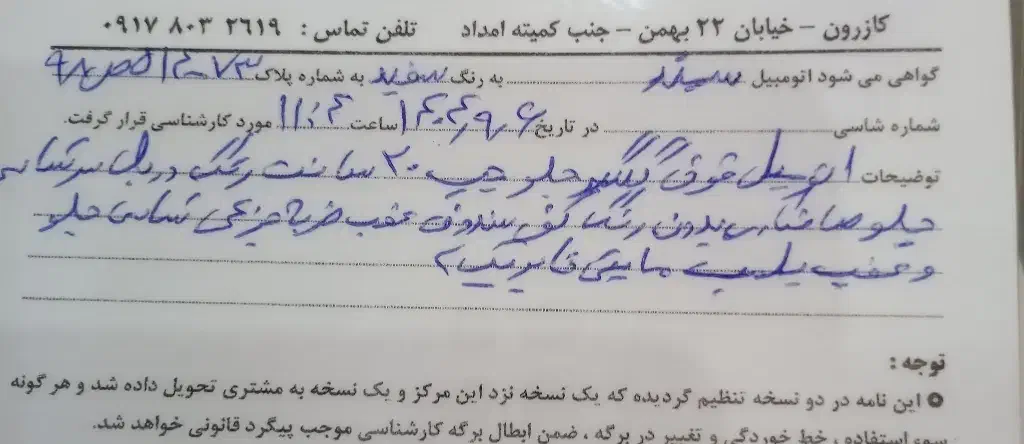 کازرون - خیابان ۲۲ بهمن - جنب کمیته امداد تلفن تماس : ۲۶۱۹ ۸۰۳ ۰۹۱۷
گواهی می شود اتومبیل سمند به رنگ سفید به شماره پلاک
شماره شاسی در تاریخ ۱۴۰۴,۹,۶ ساعت ۱۱:۴ مورد کارشناسی قرار گرفت.
توضیحات اتومبیل فوق گلگیر جلو چپ ۲۰ سانت رنگ درب
جلو صافکاری بدون رنگ کف صندوق عقب ضربه جزئی شاسی جلو
و عقب پلمپ
توجه :
این نامه در دو نسخه تنظیم گردیده که یک نسخه نزد این مرکز و یک نسخه به مشتری تحویل داده شد و هر گونه
سوء استفاده ، خط خوردگی و تغییر در برگه ، ضمن ابطال برگه کارشناسی موجب پیگرد قانونی خواهد شد.